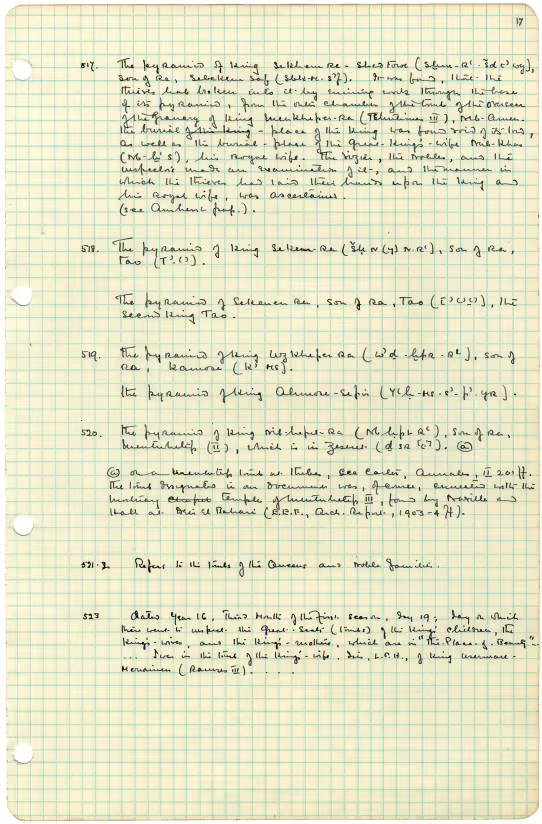 17
517. The pyramid of King Sekhem Re - Shed Towe (Sḫm-Rʿ-Šd tʾ wy),
Son of Re, Sebekem Saf (Sbk-m-sʾf). It was found, that the
thieves had broken into it by mining work through the base
of its pyramid, from the outer chamber of the tomb of the Overseer
of the Granary of King Menkheper-Ra (Tehutimes III), Neb-Amen.
The burial - place of the King was found void of its lord,
as well as the burial - place of the Great King's - wife Nub-khas
(Nb-ḫʿ s), his Royal Wife. The Vizier, the Nobles, and the
inspectors made an examination of it, and the manner in
which the thieves had laid their hands upon the King and
his Royal Wife, was ascertained.
(see Amherst pap.).
518. The pyramid of King Sekenen-Ra, Son of Ra,
Tao (Tʾ.ʿʾ).
The pyramid of Sekenen Ra, Son of Ra, Tao, the
Second King Tao.
519. The pyramid of King Wazkheper Ra (Wʾḏ - ḫpR - Rʿ), Son of
Ra, Kamose (Kʾ MS).
The pyramid of King Ahmose-Sepir (Yʿḥ - MS - Sʾ - pʾ - yR).
520. The pyramid of King Neb-hepet-Ra (Nb ḥpt Rʿ), Son of Ra,
Mentuhetep (II), which is in Zeseret (ḏ SR ʿʾt). @
@ or a Mentuhetep tomb at Thebes, see Carter, Annales, II 201 ff.
The tomb designated in an document was, of course, connected with the
mortuary chapel temple of Mentuhetep III, found by Naville and
Hall at Deir el Bahari (E.E.F., Arch. Report, 1903-4 ff).
521-2 Refers to the tombs of the Queens and Noble families.
523 dated Year 16, Third Month of the First Season, Day 19; day on which
they went to inspect the Great - Seats (tombs) of the King's Children, the
King's - wives, and the King's - mothers, which are in "the Place of Beauty"...
.... Even in the tomb of the King's - wife Isis, L.P.H., of King Usermare -
Meriamen (Ramses III). . . . .